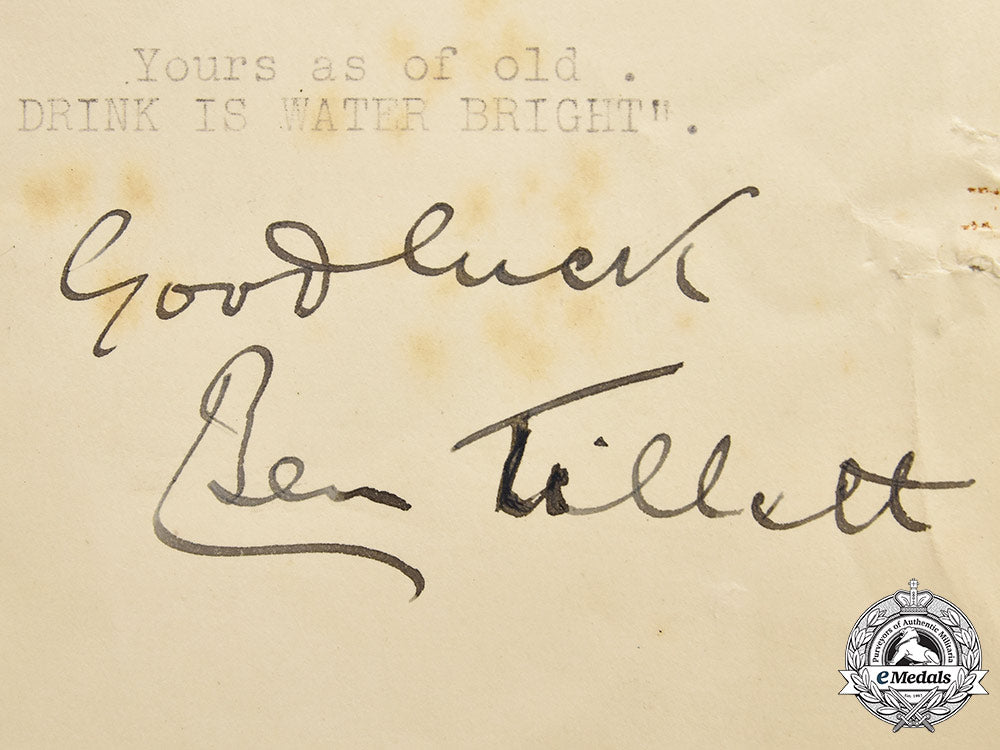 Yours as of old .
DRINK IS WATER BRIGHT".
Good luck
Ben Tillett
Purveyors of Authentic Militaria
eMedals
Est. 1967